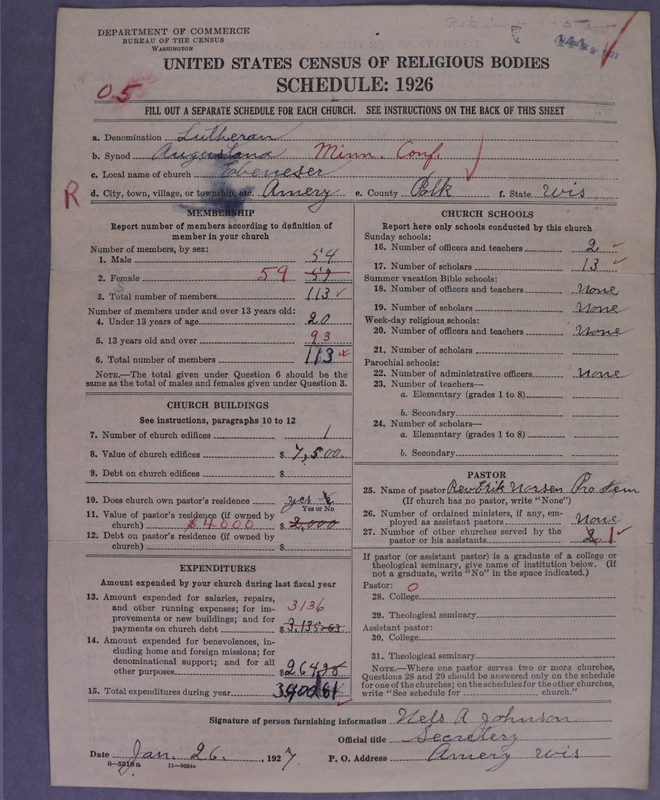 DEPARTMENT OF COMMERCE
BUREAU OF THE CENSUS
WASHINGTON
UNITED STATES CENSUS OF RELIGIOUS BODIES
SCHEDULE: 1926
05
FILL OUT A SEPARATE SCHEDULE FOR EACH CHURCH. SEE INSTRUCTIONS ON THE BACK OF THIS SHEET
a. Denomination Lutheran
b. Synod Augustana Minn. Conf.
c. Local name of church Ebeneser
R d. City, town, village, or township, etc. Amery e. County Polk f. State Wis
MEMBERSHIP
Report number of members according to definition of
member in your church
Number of members, by sex:
1. Male 54
2. Female 59 59
3. Total number of members 113
Number of members under and over 13 years old:
4. Under 13 years of age 20
5. 13 years old and over 93
6. Total number of members 113
NOTE.—The total given under Question 6 should be
same as the total of males and females given under Question 3.
CHURCH BUILDINGS
See instructions, paragraphs 10 to 12
7. Number of church edifices 1
8. Value of church edifices $ 7,500
9. Debt on church edifices $
10. Does church own pastor's residence yes
Yes or No
11. Value of pastor's residence (if owned by
church) $4000 $ 2,000
12. Debt on pastor's residence (if owned by
church) $
EXPENDITURES
Amount expended by your church during last fiscal year
13. Amount expended for salaries, repairs,
and other running expenses; for im-
provements or new buildings; and for
payments on church debt 3136 $ 3,135.63
14. Amount expended for benevolences, in-
cluding home and foreign missions; for
denominational support; and for all
other purposes $
15. Total expenditures during year
CHURCH SCHOOLS
Report here only schools conducted by this church
Sunday schools:
16. Number of officers and teachers 2
17. Number of scholars 13
Summer vacation Bible schools:
18. Number of officers and teachers None
19. Number of scholars None
Week-day religious schools:
20. Number of officers and teachers None
21. Number of scholars
Parochial schools:
22. Number of administrative officers None
23. Number of teachers—
a. Elementary (grades 1 to 8)
b. Secondary
24. Number of scholars—
a. Elementary (grades 1 to 8)
b. Secondary
PASTOR
25. Name of pastor Rev Erik Pro tem
(If church has no pastor, write "None")
26. Number of ordained ministers, if any, em-
ployed as assistant pastors None
27. Number of other churches served by the
pastor or his assistants 2 1
If pastor (or assistant pastor) is a graduate of a college or
theological seminary, give name of institution below. (If
not a graduate, write "No" in the space indicated.)
Pastor: 0
28. College
29. Theological seminary
Assistant pastor:
30. College
31. Theological seminary
NOTE.—Where one pastor serves two or more churches,
Questions 28 and 29 should be answered only on the schedule
for one of the churches; on the schedules for the other churches,
write "See schedule for church."
Signature of person furnishing information Nels A Johnson
Official title Secretery
Date Jan. 26, 1927 P. O. Address Amery Wis
8-5518a 11-9554a